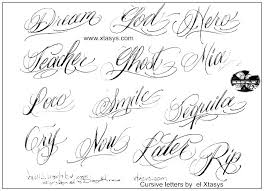 Dream God Hero
www.xtasys.com
Teacher Ghost Mia
Poco Smile Sequela
Cry Now Later Rip
xtasys.com
Cursive letters by el Xtasys